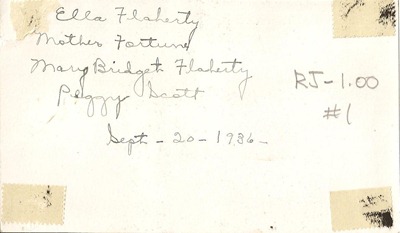 Ella Flaherty
Mother Fortune
Mary Bridget Flaherty
Peggy Scott
Sept - 20 - 1936 -
RJ-1.00
#1